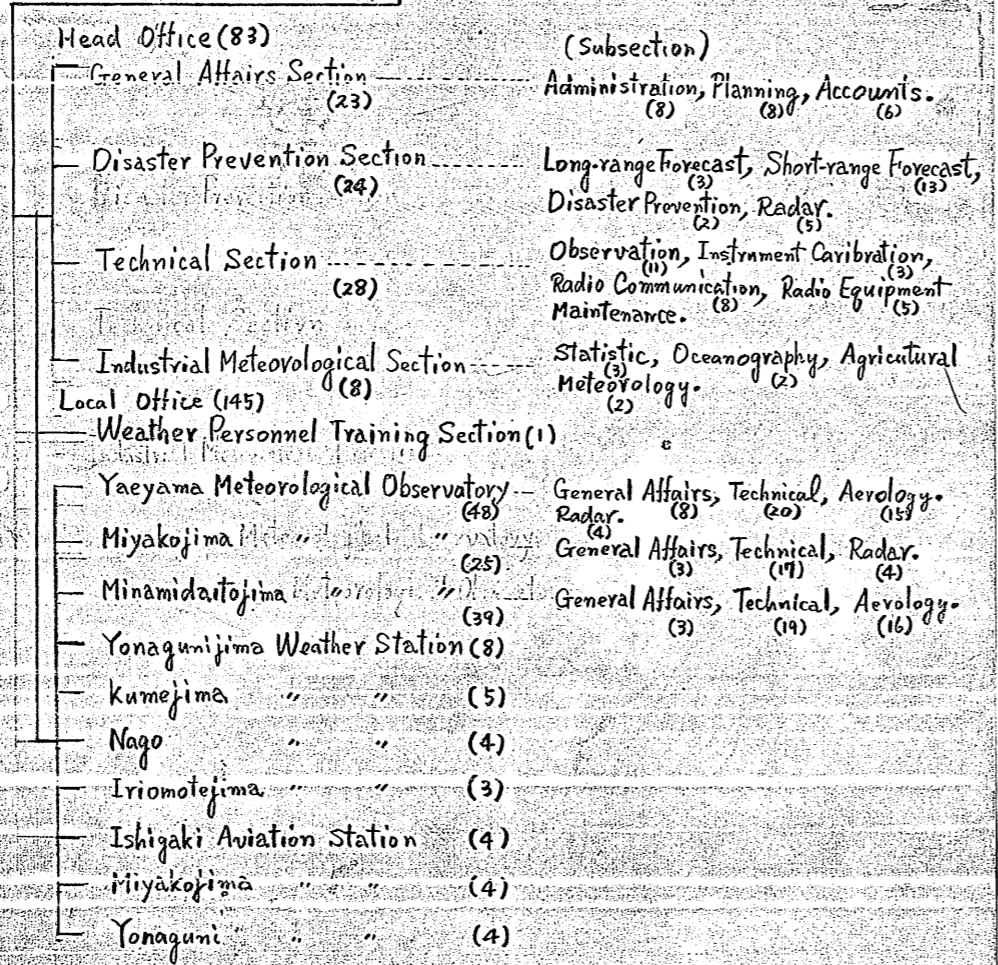 Head Office (83)
(Subsection)
General Affairs Section Administration, Planning, Accounts.
(23) (8) (8) (6)
Disaster Prevention Section Long-range Forecast, Short-range Forecast,
(24) (3) (13)
Disaster Prevention, Radar.
(2) (5)
Technical Section Observation, Instrnment Caribration,
(28) (11) (3)
Radio Communication, Radio Equipment
(8) (5)
Maintenance.
Industrial Meteorological Section Statistic, Oceanography, Agricutural
(8) (3) (2)
Meteorology.
(2)
Local Office (145)
Weather Personnel Training Section (1)
Yaeyama Meteorological Observatory General Affairs, Technical, Aerology.
(48) (8) (20) (15)
Radar.
(4)
Miyakojima " " General Affairs, Technical, Radar.
(25) (3) (17) (4)
Minamidaitojima " " General Affairs, Technical, Aerology.
(39) (3) (19) (16)
Yonagunijima Weather Station (8)
Kumejima " " (5)
Nago " " (4)
Iriomotejima " " (3)
Ishigaki Aviation Station (4)
Miyakojima " " (4)
Yonaguni " " (4)